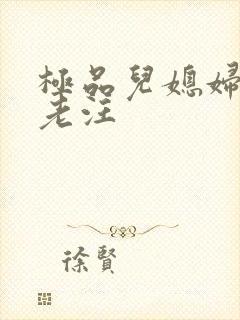 極品兒媳婦
老汪
徐賢